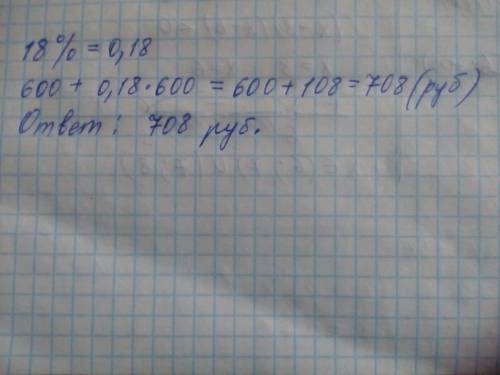 18% = 0,18
600 + 0,18·600 = 600 + 108 = 708 (руб)
Ответ: 708 руб.